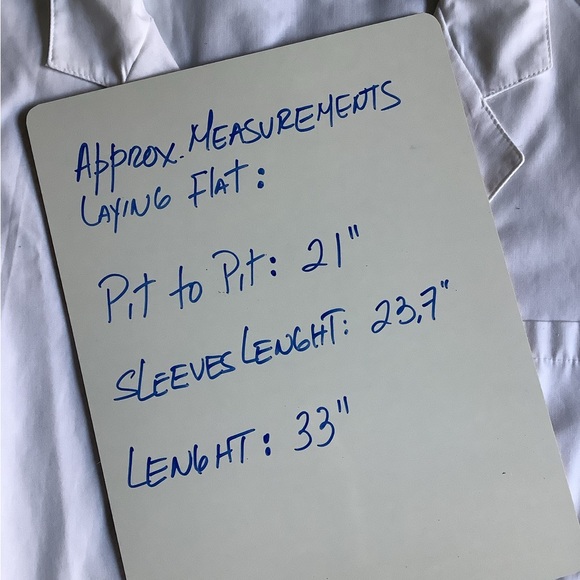 Approx. MEASUREMENTS
LAYING Flat:
Pit to Pit: 21"
SLEEVES LENGHT: 23,7"
LENGHT: 33"